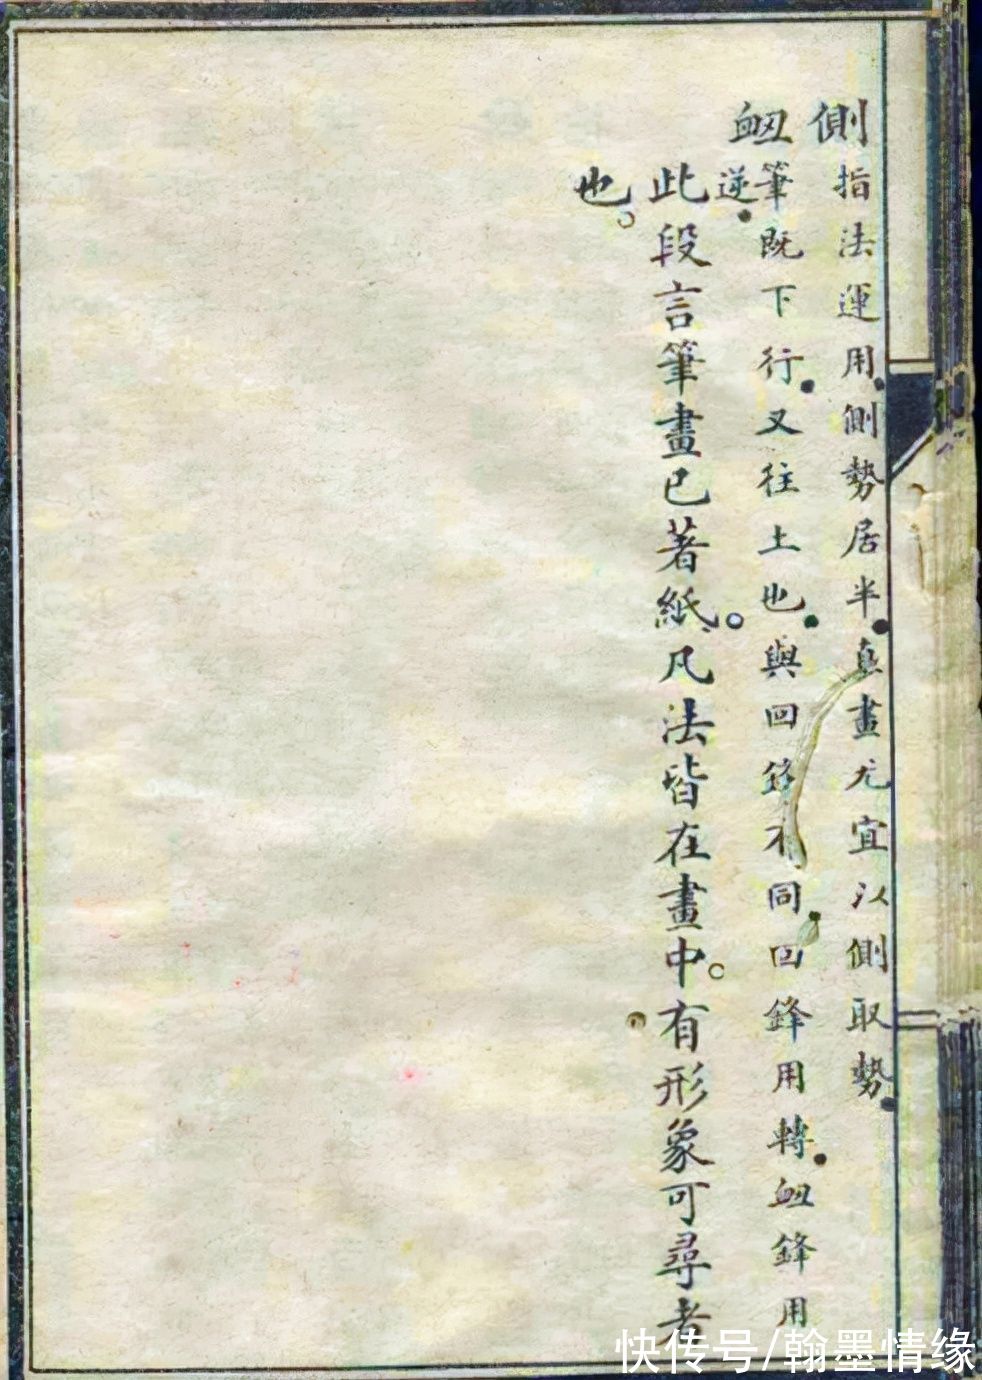 側指法運用側勢居半直畫尤宜以側取勢
衄筆既下行又往上也與回鋒不同回鋒用轉衄鋒用
逆
此段言筆畫已著紙凡法皆在畫中有形象可尋者
也
快传号/翰墨情缘